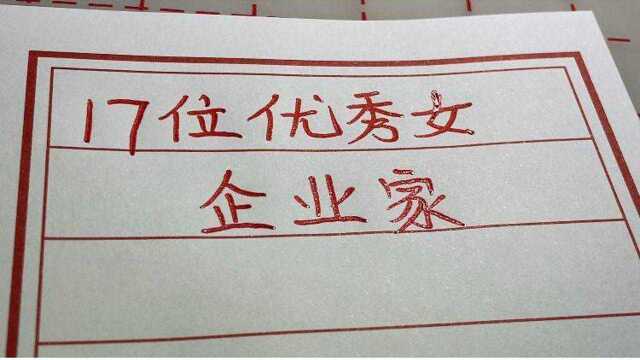 17位优秀女
企业家